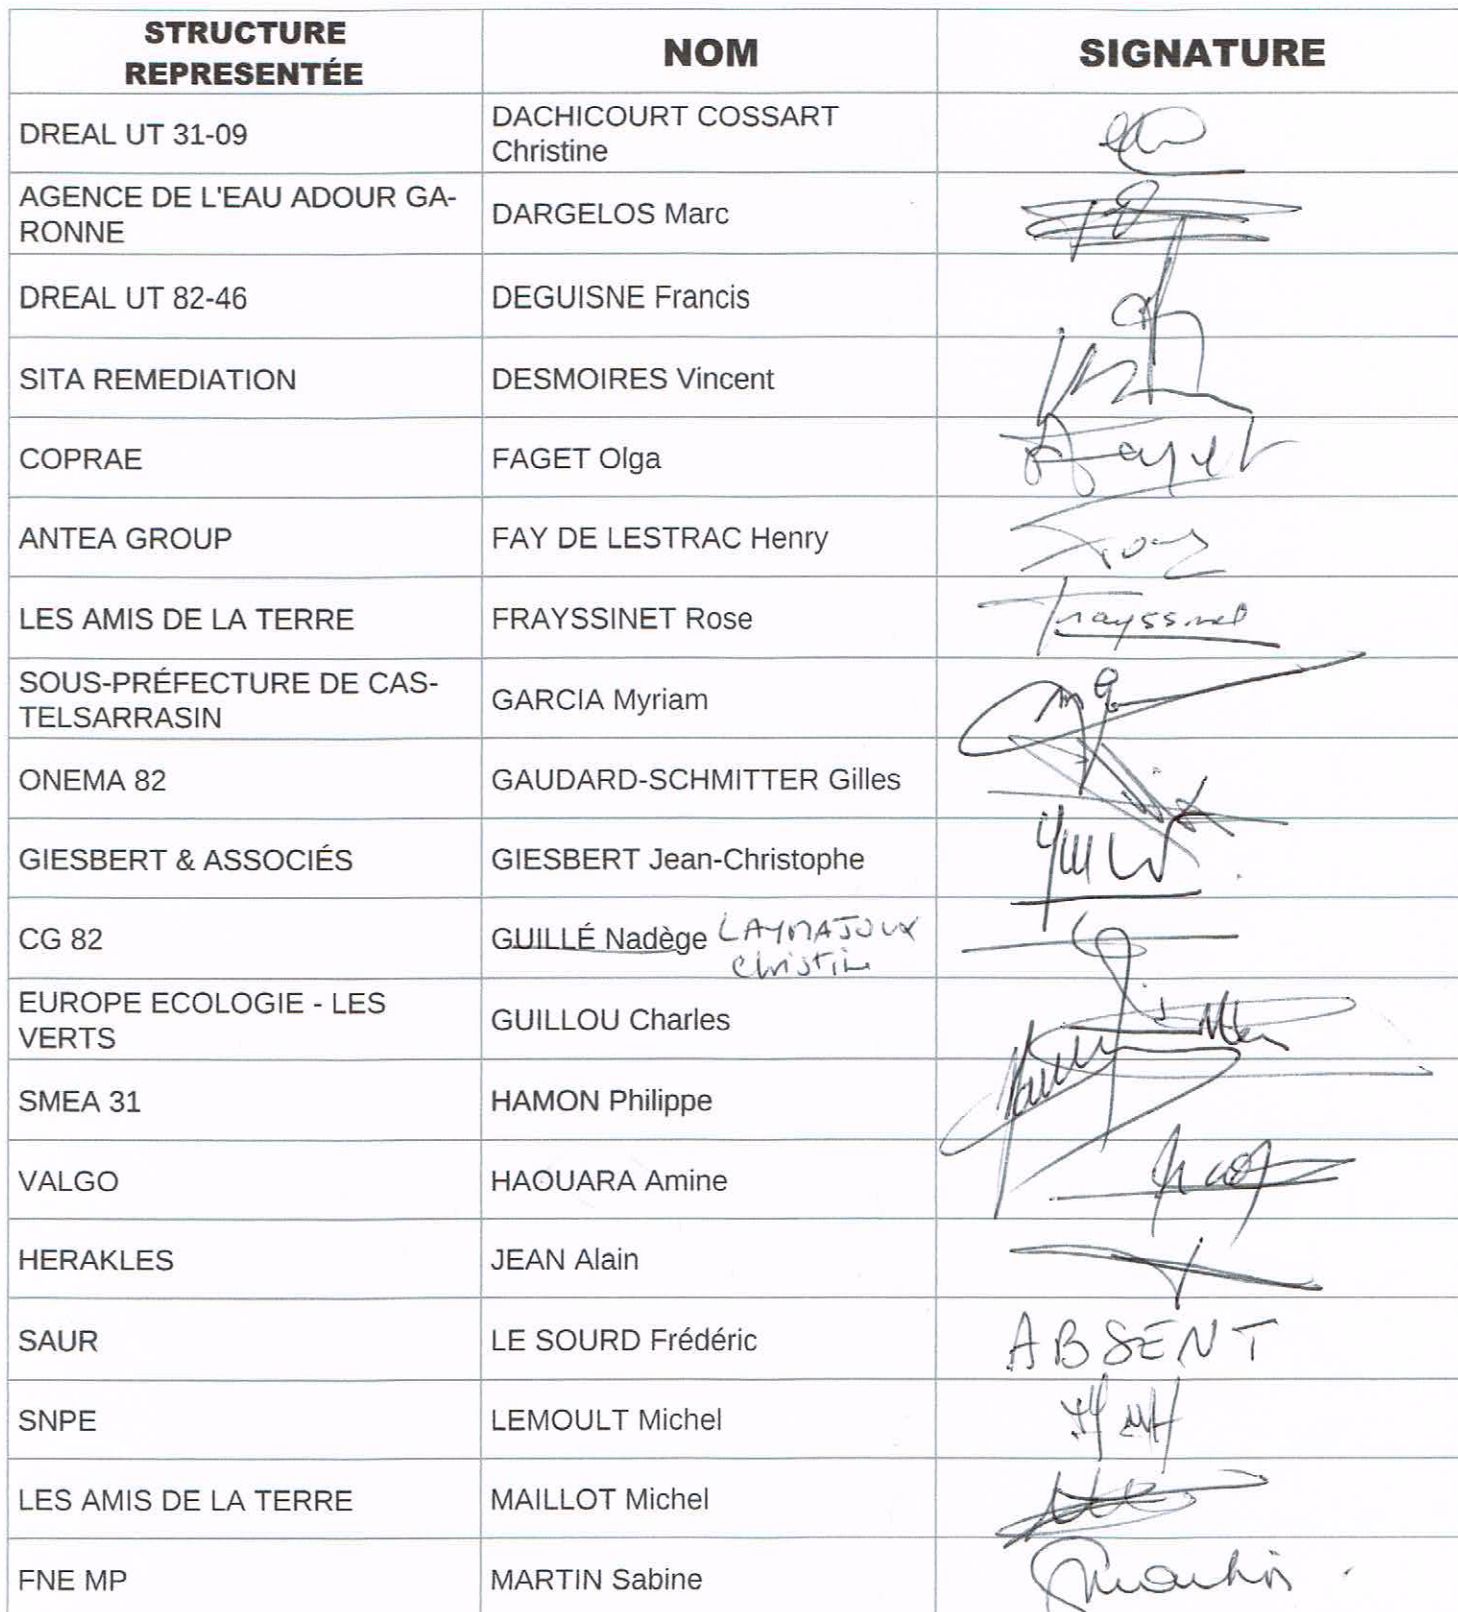 STRUCTURE
REPRESENTÉE
NOM
SIGNATURE
DREAL UT 31-09
DACHICOURT COSSART
Christine
AGENCE DE L'EAU ADOUR GA-
RONNE
DARGELOS Marc
DREAL UT 82-46
DEGUISNE Francis
SITA REMEDIATION
DESMOIRES Vincent
COPRAE
FAGET Olga
Faget
ANTEA GROUP
FAY DE LESTRAC Henry
LES AMIS DE LA TERRE
FRAYSSINET Rose
Frayssinet
SOUS-PRÉFECTURE DE CAS-
TELSARRASIN
GARCIA Myriam
ONEMA 82
GAUDARD-SCHMITTER Gilles
GIESBERT & ASSOCIÉS
GIESBERT Jean-Christophe
CG 82
GUILLÉ Nadège LAYMAJOUX
Christine
EUROPE ECOLOGIE - LES
VERTS
GUILLOU Charles
SMEA 31
HAMON Philippe
VALGO
HAOUARA Amine
HERAKLES
JEAN Alain
SAUR
LE SOURD Frédéric
ABSENT
SNPE
LEMOULT Michel
LES AMIS DE LA TERRE
MAILLOT Michel
FNE MP
MARTIN Sabine
SMartin